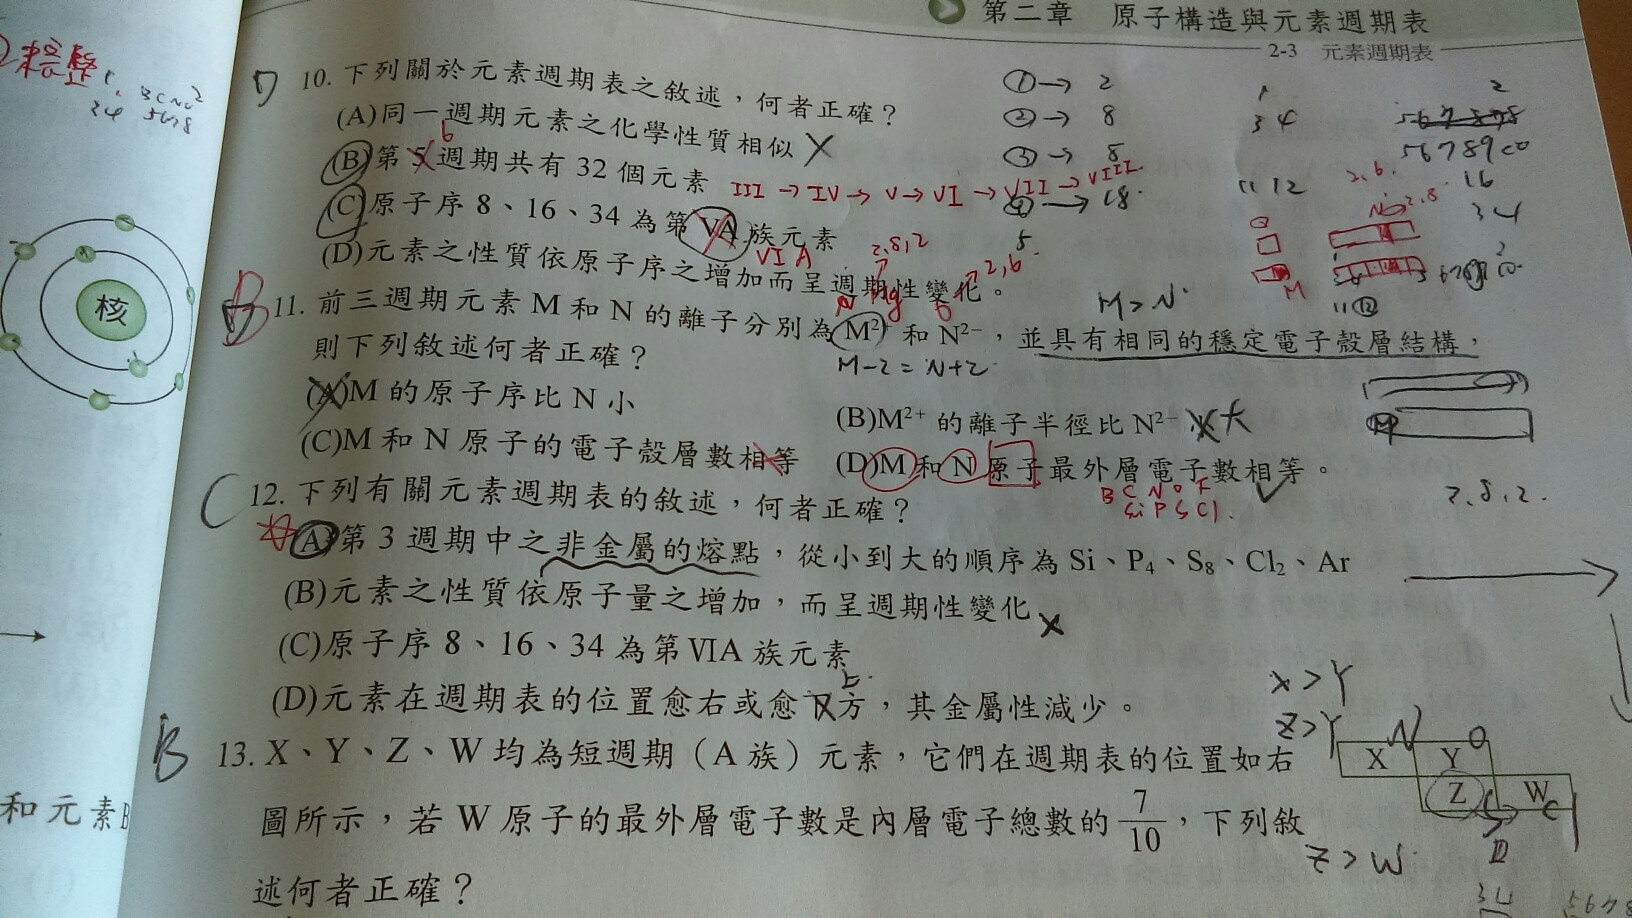 第二章 原子構造與元素週期表
2-3 元素週期表
核
D 10. 下列關於元素週期表之敘述，何者正確？
(A)同一週期元素之化學性質相似
(B)第 5 週期共有 32 個元素
6
(C)原子序 8、16、34 為第 VA 族元素
VIA
(D)元素之性質依原子序之增加而呈週期性變化。
①→ 2
②→ 8
③→ 8
④→ 18
III → IV → V → VI → VII → VIII
B 11. 前三週期元素 M 和 N 的離子分別為 M²⁺ 和 N²⁻，並具有相同的穩定電子殼層結構，
則下列敘述何者正確？
M-2=N+2
M>N
2,8,2
Mg
2,6
(A)M 的原子序比 N 小
(B)M²⁺ 的離子半徑比 N²⁻ 大
(C)M 和 N 原子的電子殼層數相等
(D)M 和 N 原子最外層電子數相等。
B C N O F
Si P S Cl
2,8,2
C 12. 下列有關元素週期表的敘述，何者正確？
(A)第 3 週期中之非金屬的熔點，從小到大的順序為 Si、P₄、S₈、Cl₂、Ar
(B)元素之性質依原子量之增加，而呈週期性變化
(C)原子序 8、16、34 為第 VIA 族元素
(D)元素在週期表的位置愈右或愈下方，其金屬性減少。
上
X>Y
Z>Y
B 13. X、Y、Z、W 均為短週期（A 族）元素，它們在週期表的位置如右
圖所示，若 W 原子的最外層電子數是內層電子總數的 7/10，下列敘
述何者正確？
N O
X Y
Z W
Z>W
和元素B